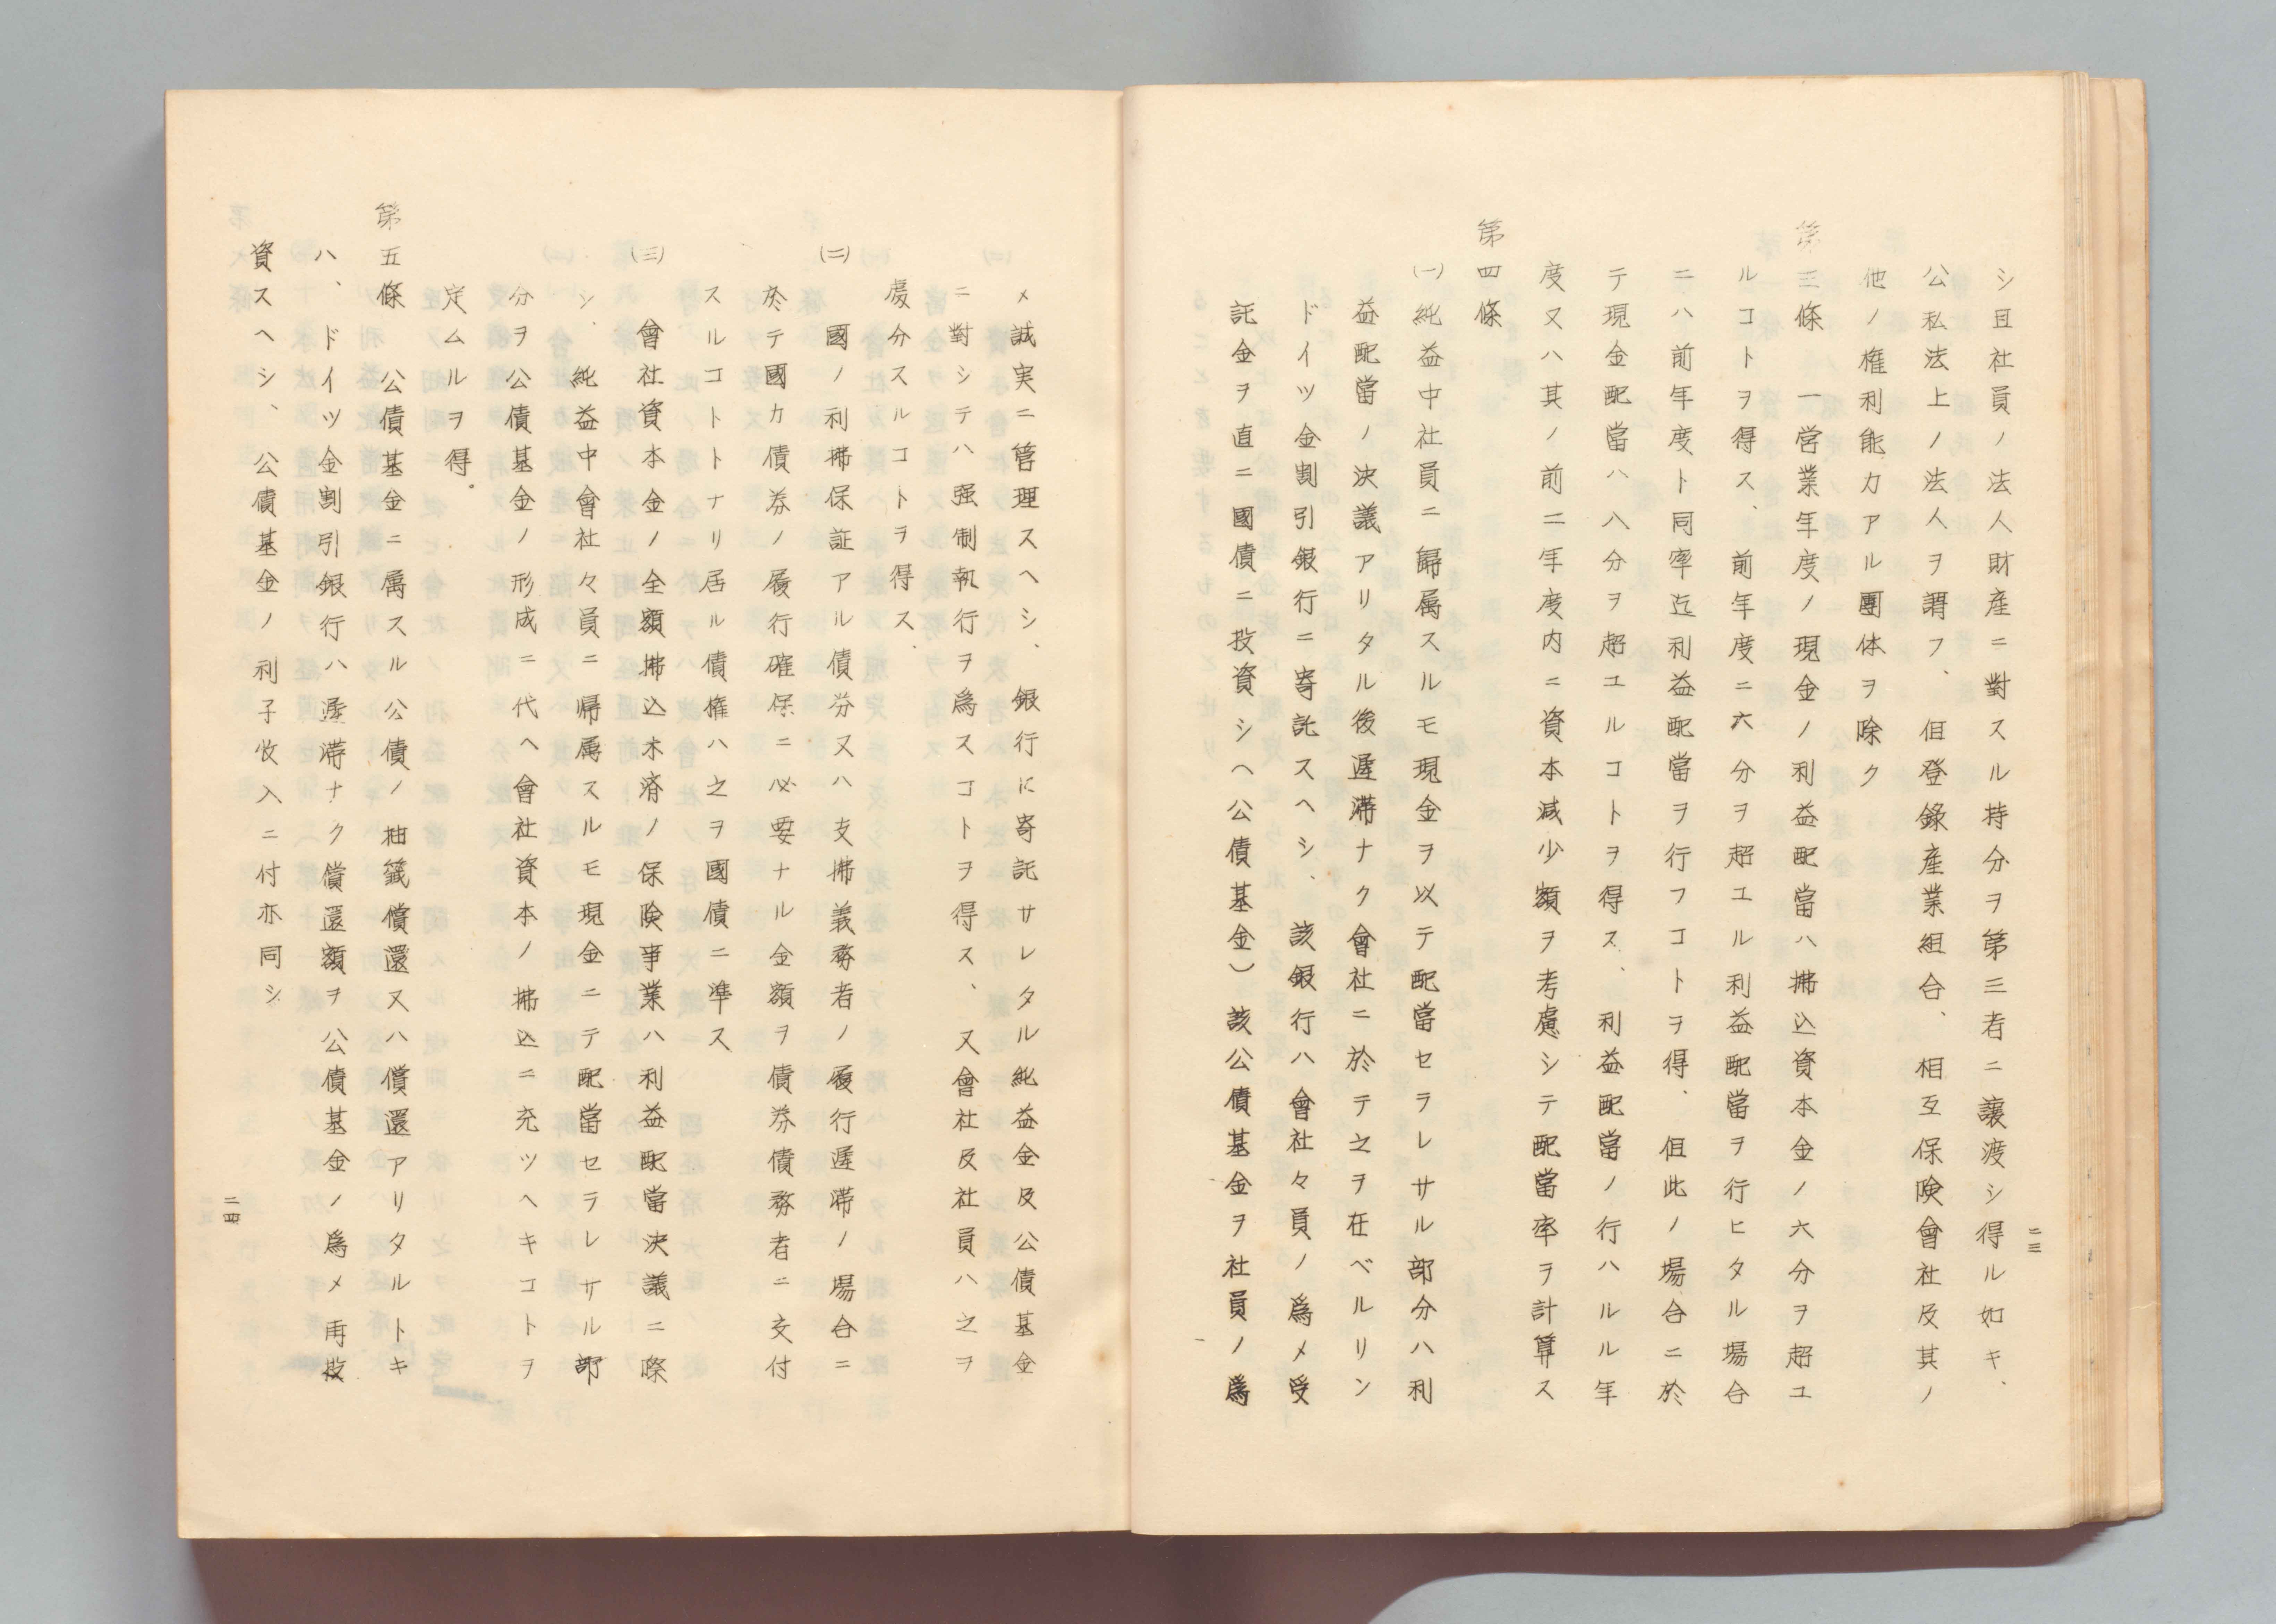 シ且社員ノ法人財産ニ對スル持分ヲ第三者ニ讓渡シ得ル如キ、
公私法上ノ法人ヲ謂フ、但登錄産業組合、相互保険會社及其ノ
他ノ権利能力アル團体ヲ除ク
第三條 一営業年度ノ現金ノ利益配當ハ拂込資本金ノ六分ヲ超ユ
ルコトヲ得ス、前年度ニ六分ヲ超ユル利益配當ヲ行ヒタル場合
ニハ前年度ト同率迄利益配當ヲ行フコトヲ得、但此ノ場合ニ於
テ現金配當ハ八分ヲ超ユルコトヲ得ス、利益配當ノ行ハルル年
度又ハ其ノ前二年度内ニ資本减少額ヲ考慮シテ配當率ヲ計算ス
第四條
(一)純益中社員ニ歸属スルモ現金ヲ以テ配當セラレサル部分ハ利
益配當ノ決議アリタル後遅滞ナク會社ニ於テ之ヲ在ベルリン
ドイツ金割引銀行ニ寄託スヘシ、該銀行ハ會社々員ノ爲メ受
託金ヲ直ニ國債ニ投資シヘ公債基金)該公債基金ヲ社員ノ爲
二三
メ誠実ニ管理スヘシ、銀行に寄託サレタル純益金及公債基金
ニ對シテハ强制執行ヲ爲スコトヲ得ス、又會社及社員ハ之ヲ
處分スルコトヲ得ス、
(二)國ノ利拂保証アル債券又ハ支拂義務者ノ履行遅滞ノ場合ニ
於テ國カ債券ノ履行確保ニ必要ナル金額ヲ債券債務者ニ交付
スルコトトナリ居ル債権ハ之ヲ國債ニ準ス
(三)會社資本金ノ全額拂込未済ノ保険事業ハ利益配當決議ニ際
シ、純益中會社々員ニ帰属スルモ現金ニテ配當セラレサル部
分ヲ公債基金ノ形成ニ代ヘ會社資本ノ拂込ニ充ツヘキコトヲ
定ムルヲ得。
第五條 公債基金ニ属スル公債ノ抽籤償還又ハ償還アリタルトキ
ハ、ドイツ金割引銀行ハ遅滞ナク償還額ヲ公債基金ノ爲メ再投
資スヘシ、公債基金ノ利子收入ニ付亦同シ
二四